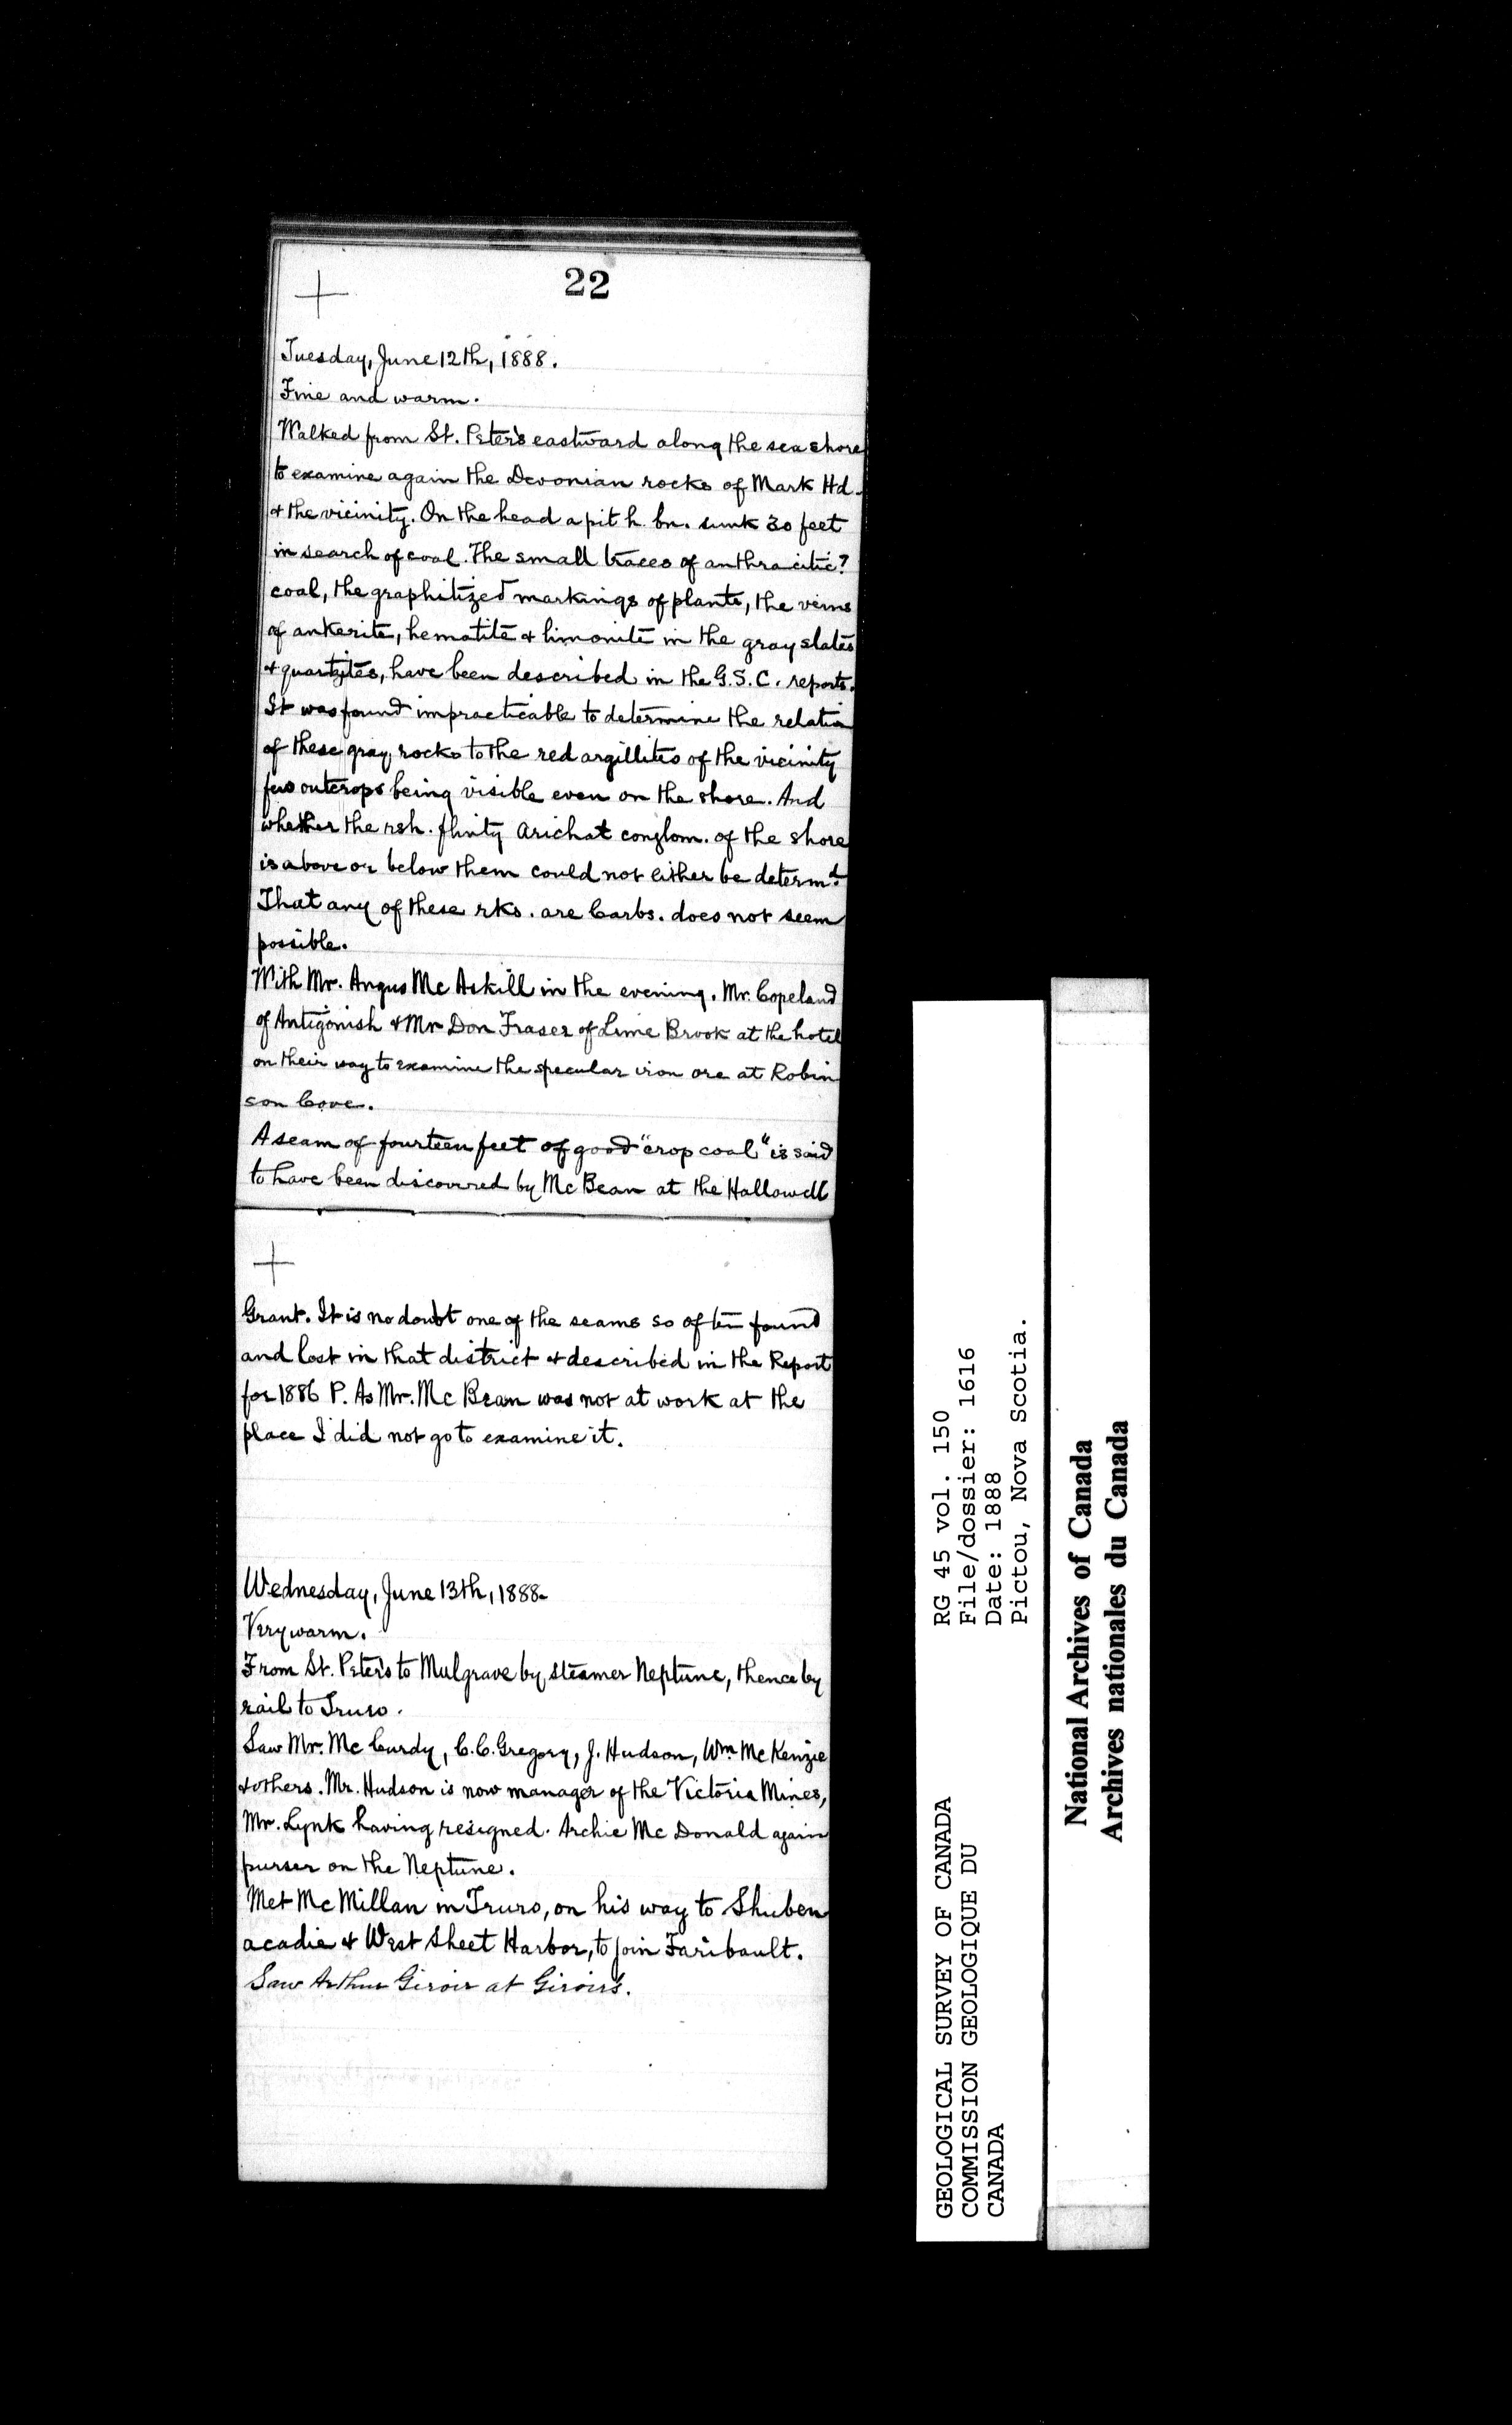 22
Tuesday, June 12th, 1888.
Fine and warm.
Walked from St. Peter's eastward along the sea shore
to examine again the Devonian rocks of Mark Hd.
& the vicinity. On the head a pit h. bn. sunk 30 feet
in search of coal. The small traces of anthracitic?
coal, the graphitized markings of plants, the veins
of ankerite, hematite & limonite in the gray slates
& quartzites, have been described in the G.S.C. reports.
It was found impracticable to determine the relation
of these gray rocks to the red argillites of the vicinity
few outcrops being visible even on the shore. And
whether the rsh. flinty Arichat conglom. of the shore
is above or below them could not either be determd.
That any of these rks. are Carbs. does not seem
possible.
With Mr. Angus Mc Askill in the evening. Mr. Copeland
of Antigonish & Mr Don Fraser of Lime Brook at the hotel
on their way to examine the specular iron ore at Robin
son Cove.
A seam of fourteen feet of good "crop coal" is said
to have been discovered by Mc Bean at the Hallowell
Grant. It is no doubt one of the seams so often found
and lost in that district & described in the Report
for 1886 P. As Mr. Mc Bean was not at work at the
place I did not go to examine it.
Wednesday, June 13th, 1888.
Very warm.
From St. Peter's to Mulgrave by steamer Neptune, thence by
rail to Truro.
Saw Mr. Mc Curdy, C.C. Gregory, J. Hudson, Wm Mc Kenzie
& others. Mr. Hudson is now manager of the Victoria Mines,
Mr. Lynk having resigned. Archie Mc Donald again
purser on the Neptune.
Met Mc Millan in Truro, on his way to Shuben
acadie & West Sheet Harbor, to join Faribault.
Saw Arthur Giroir at Giroir's.
GEOLOGICAL SURVEY OF CANADA
COMMISSION GEOLOGIQUE DU
CANADA
RG 45 vol. 150
File/dossier: 1616
Date: 1888
Pictou, Nova Scotia.
National Archives of Canada
Archives nationales du Canada